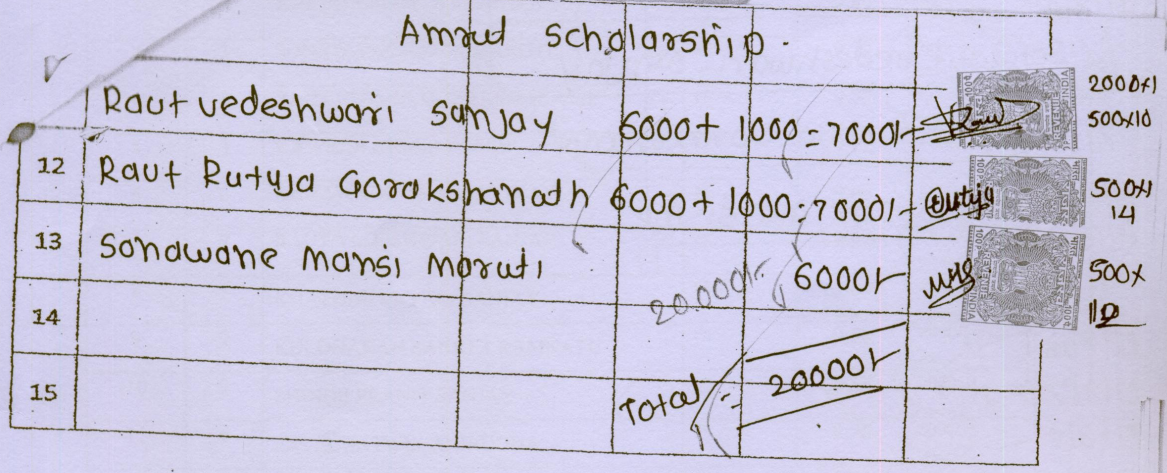 Amrut Scholarship.
Raut vedeshwari Sanjay 6000+ 1000 = 7000/- 2000x1
500x10
12 Raut Rutuja Gorakshanath 6000+ 1000 = 7000/- Rutuja 500x
14
13 Sonawane mansi maruti 6000/- 500x
12
20,000/-
14
Total = 20000/-
15